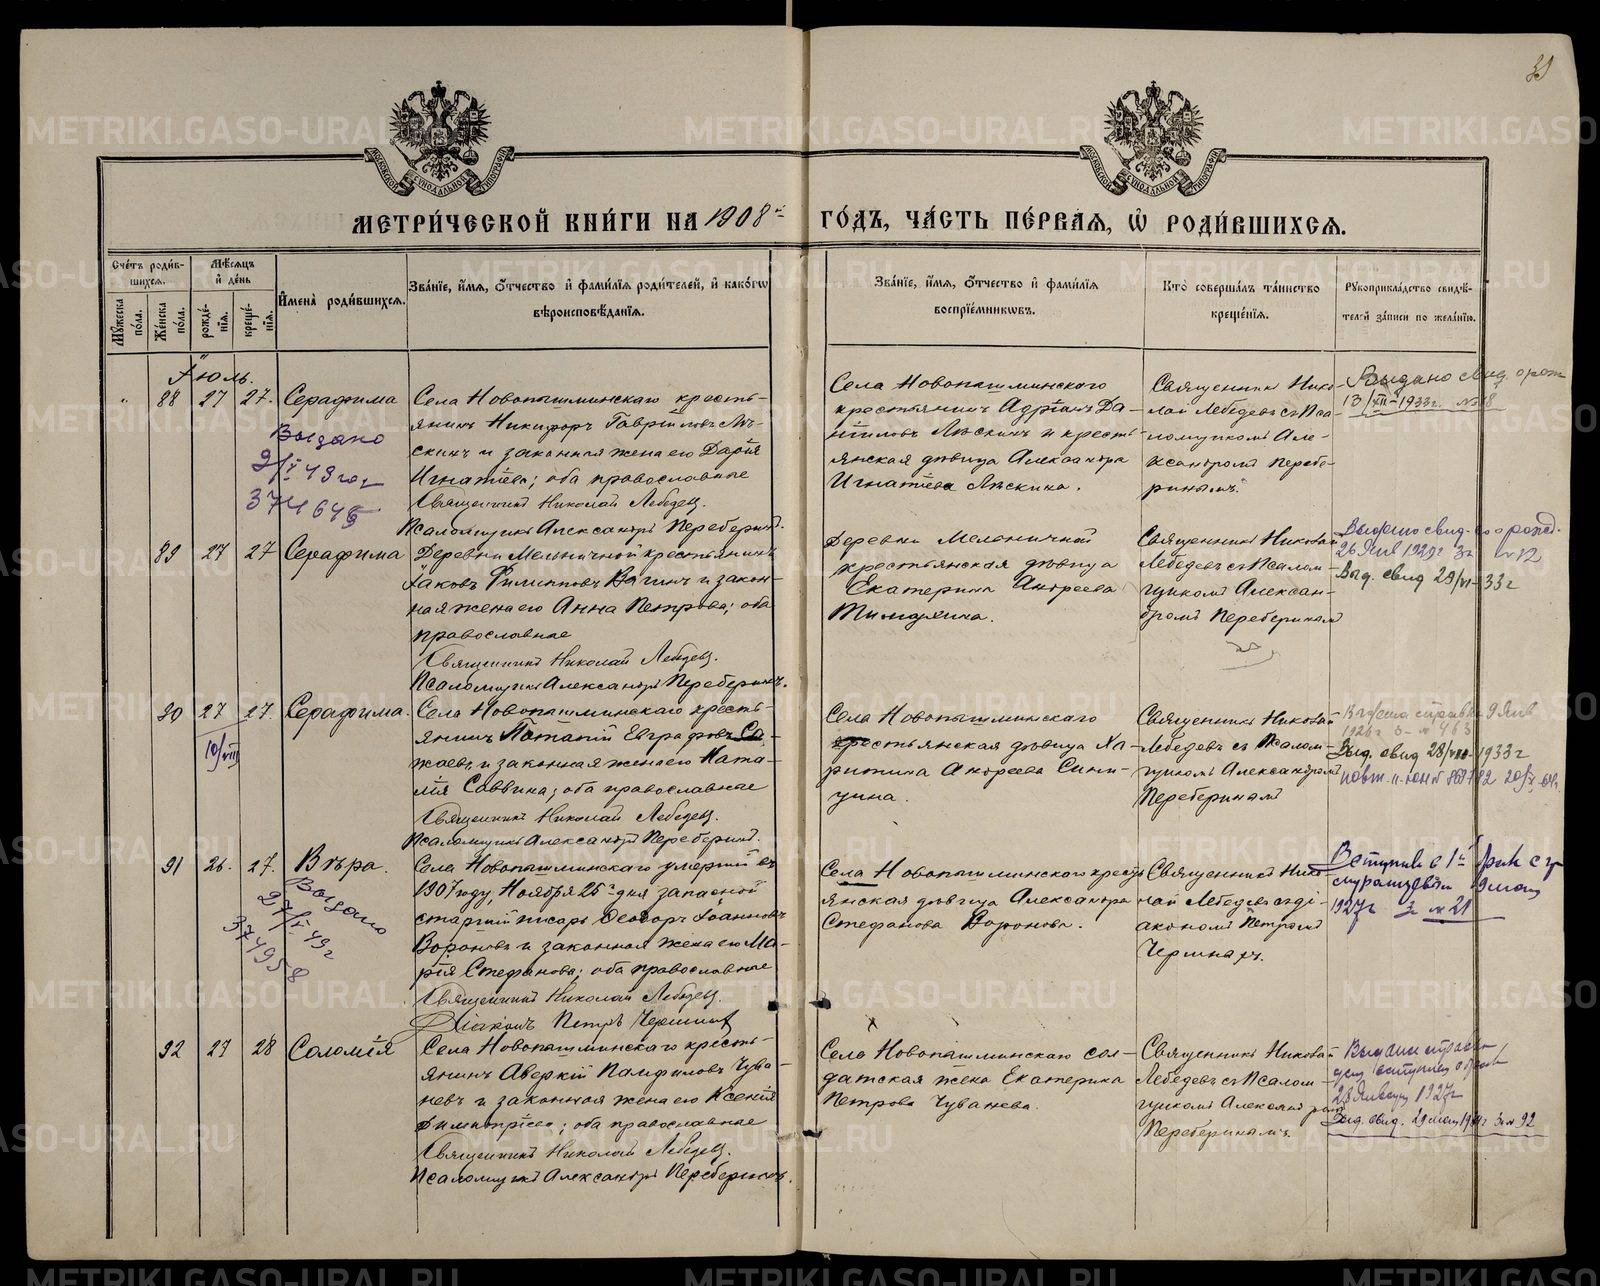 МЕТРИ́ЧЕСКОЙ КНИ́ГИ НА 1908й ГО́ДЪ, ЧА́СТЬ ПЕ́РВАЯ, Ѡ РОДИ́ВШИХСЯ.
Сче́тъ роди́в-
шихся.
Мꙋ́жеска по́ла.
Же́нска по́ла.
Мѣ́сяцъ и҆ де́нь
рожде́-
нїя.
креще́-
нїя.
И҆мена̀ роди́вшихся.
Зва́нїе, и҆́мя, ѻ҆́тчество и҆ фами́лїя роди́телей, и҆ како́гѡ
вѣроисповѣ́данїя.
Зва́нїе, и҆́мя, ѻ҆́тчество и҆ фами́лїя
воспрїе́мникѡвъ.
Кто̀ соверша́лъ та́инство
креще́нїя.
Рꙋкоприкла́дство свидѣ́-
телей за́писи по жела́нїю.
Іюль.
88 27 27. Серафима
Села Новопышминскаго кресть-
янинъ Никифоръ Гавріиловъ Лѣ-
скинъ и законная жена его Дарія
Игнатіева; оба православные
Священникъ Николай Лебедевъ.
Псаломщикъ Александръ Переберинъ.
Села Новопышминскаго
крестьянинъ Адріанъ Да-
ніиловъ Лѣскинъ и кресть-
янская дѣвица Александра
Игнатіева Лѣскина.
Священникъ Нико-
лай Лебедевъ съ Пса-
ломщикомъ Але-
ксандромъ Перебе-
ринымъ.
Выдано свид. о рожд
13/XII-1933г. №
Выдано
37464
89 27 27 Серафима
Деревни Мельничной крестьянинъ
Іаковъ Филипповъ Вагинъ и закон-
ная жена его Анна Петрова; оба
православные
Священникъ Николай Лебедевъ.
Псаломщикъ Александръ Переберинъ.
Деревни Мельничной
крестьянская дѣвица
Екатерина Андреева
Священникъ Николай
Лебедевъ съ Псалом-
щикомъ Алексан-
дромъ Переберинымъ
Выдано свид. о рожд.
26 Янв 1929г №12
Выд. свид 29/VI-33г
90 27 27. Серафима.
10/VIII
Села Новопышминскаго кресть-
янинъ Потапій Евграфовъ Са-
жаевъ и законная жена его Ната-
лія Саввина; оба православные
Священникъ Николай Лебедевъ.
Псаломщикъ Александръ Переберинъ.
Села Новопышминскаго
крестьянская дѣвица Ха-
ритина Андреева Сини-
цина.
Священникъ Николай
Лебедевъ съ Псалом-
щикомъ Александромъ
Переберинымъ
Выдана справка 9 Янв
Выд. свид 28/VIII-1933г
91 26. 27. Вѣра.
Села Новопышминскаго умершій въ
1907 году, Ноября 26го дня запасной
старшій писарь Ѳеодоръ Іоанновъ
Вороновъ и законная жена его Ма-
рія Стефанова; оба православные
Священникъ Николай Лебедевъ.
Діаконъ Петръ
Села Новопышминскаго кресть-
янская дѣвица Александра
Стефанова Воронова.
Священникъ Нико-
лай Лебедевъ съ ді-
акономъ Петромъ
1927г № 21
Выдано
27/I 49г
374958
92 27 28 Соломія
Села Новопышминскаго кресть-
янинъ Аверкій Памфиловъ Чува-
шевъ и законная жена его Ксенія
Димитріева; оба православные
Священникъ Николай Лебедевъ.
Псаломщикъ Александръ Переберинъ.
Села Новопышминскаго сол-
датская жена Екатерина
Петрова Чувашева.
Священникъ Николай
Лебедевъ съ Псалом-
щикомъ Александромъ
Переберинымъ.
Выдана справка
28 Января 1927г
Выд. свид. № 92
METRIKI.GASO-URAL.RU